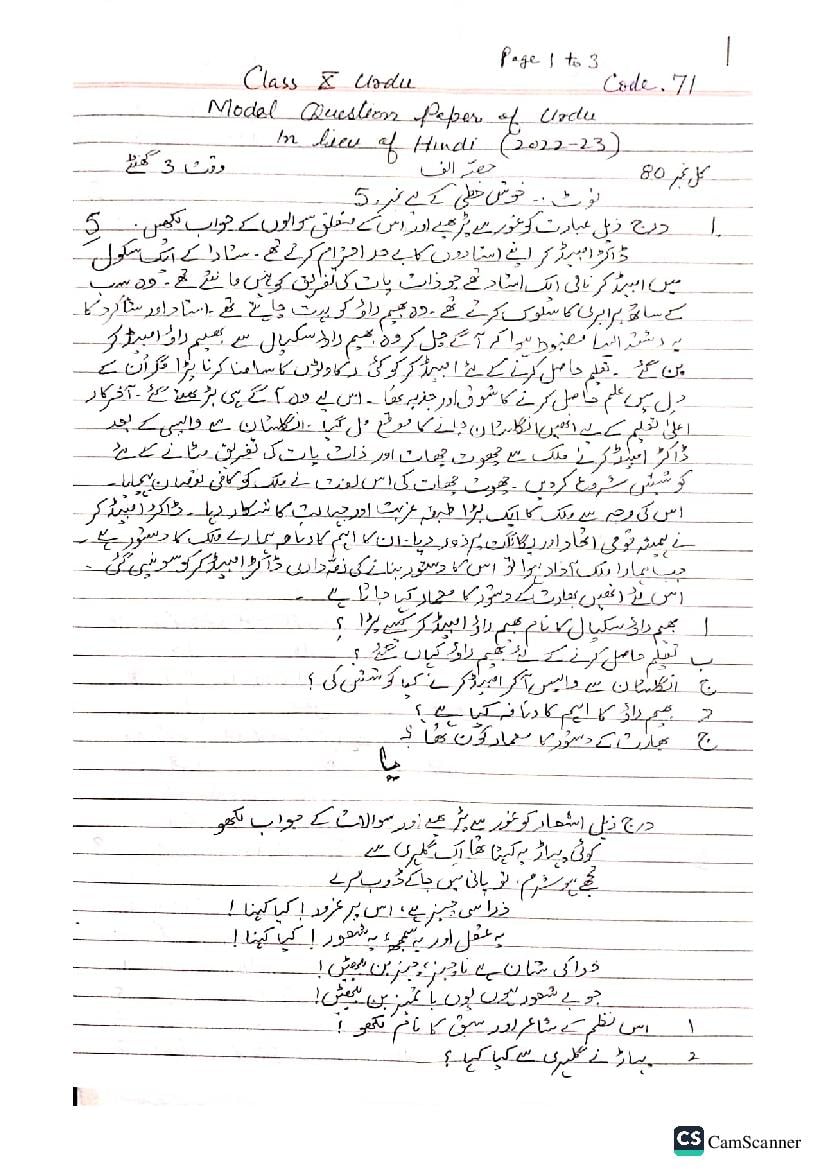 Page 1 to 3
1
Class X Urdu Code. 71
Model Question Paper of Urdu
In lieu of Hindi (2022-23)
کل نمبر 80 حصہ الف وقت 3 گھنٹے
نوٹ .. خوش خطی کے لیے نمبر 5
1. درج ذیل عبارت کو غور سے پڑھیے اور اس کے متعلق سوالوں کے جواب لکھیں. 5
ڈاکٹر امبیڈکر اپنے استادوں کا بے حد احترام کرتے تھے۔ ستارا کے ایک سکول
میں امبیڈکر نامی ایک استاد تھے جو ذات پات کی تفریق کو نہیں مانتے تھے۔ وہ سب
کے ساتھ برابری کا سلوک کرتے تھے۔ وہ بھیم راؤ کو بہت چاہتے تھے۔ استاد اور شاگرد کا
یہ رشتہ ایسا مضبوط ہوا کہ آگے چل کر وہ بھیم راؤ سکپال سے بھیم راؤ امبیڈکر
بن گئے۔ تعلیم حاصل کرنے کے لئے امبیڈکر کو کئی رکاوٹوں کا سامنا کرنا پڑا مگر اُن کے
دل میں علم حاصل کرنے کا شوق اور جذبہ تھا۔ اس لیے وہ آگے ہی بڑھتے گئے۔ آخر کار
اعلیٰ تعلیم کے لیے انھیں انگلستان جانے کا موقع مل گیا۔ انگلستان سے واپسی کے بعد
ڈاکٹر امبیڈکر نے ملک سے چھوت چھات اور ذات پات کی تفریق مٹانے کے لئے
کوششیں شروع کردیں۔ چھوت چھات کی اس لعنت نے ملک کو کافی نقصان پہنچایا۔
اس کی وجہ سے ملک کا ایک بڑا طبقہ غربت اور جہالت کا شکار رہا۔ ڈاکٹر امبیڈکر
نے ہمیشہ قومی اتحاد اور یگانگت پر زور دیا۔ ان کا اہم کارنامہ ہمارے ملک کا دستور ہے۔
جب ہمارا ملک آزاد ہوا تو اس کا دستور بنانے کی ذمہ داری ڈاکٹر امبیڈکر کو سونپی گئی۔
اس لئے انھیں بھارت کے دستور کا معمار کہا جاتا ہے۔
ا بھیم راؤ سکپال کا نام بھیم راؤ امبیڈکر کیسے پڑا؟
ب تعلیم حاصل کرنے کے لئے بھیم راؤ کہاں گئے؟
ج انگلستان سے واپس آکر امبیڈکر نے کیا کوشش کی؟
د بھیم راؤ کا اہم کارنامہ کیا ہے؟
ج بھارت کے دستور کا معمار کون تھا؟
یا
درج ذیل اشعار کو غور سے پڑھیے اور سوالات کے جواب لکھو
کوئی پہاڑ یہ کہتا تھا اک گلہری سے
تجھے ہو شرم، تو پانی میں جا کے ڈوب مرے
ذرا سی چیز ہے، اس پر غرور! کیا کہنا!
یہ عقل اور یہ سمجھ، یہ شعور! کیا کہنا!
خدا کی شان ہے ناچیز، چیز بن بیٹھیں!
جو بے شعور ہوں یوں با تمیز بن بیٹھیں!
1 اس نظم کے شاعر اور سبق کا نام لکھو؟
2 پہاڑ نے گلہری سے کیا کہا؟
CS CamScanner